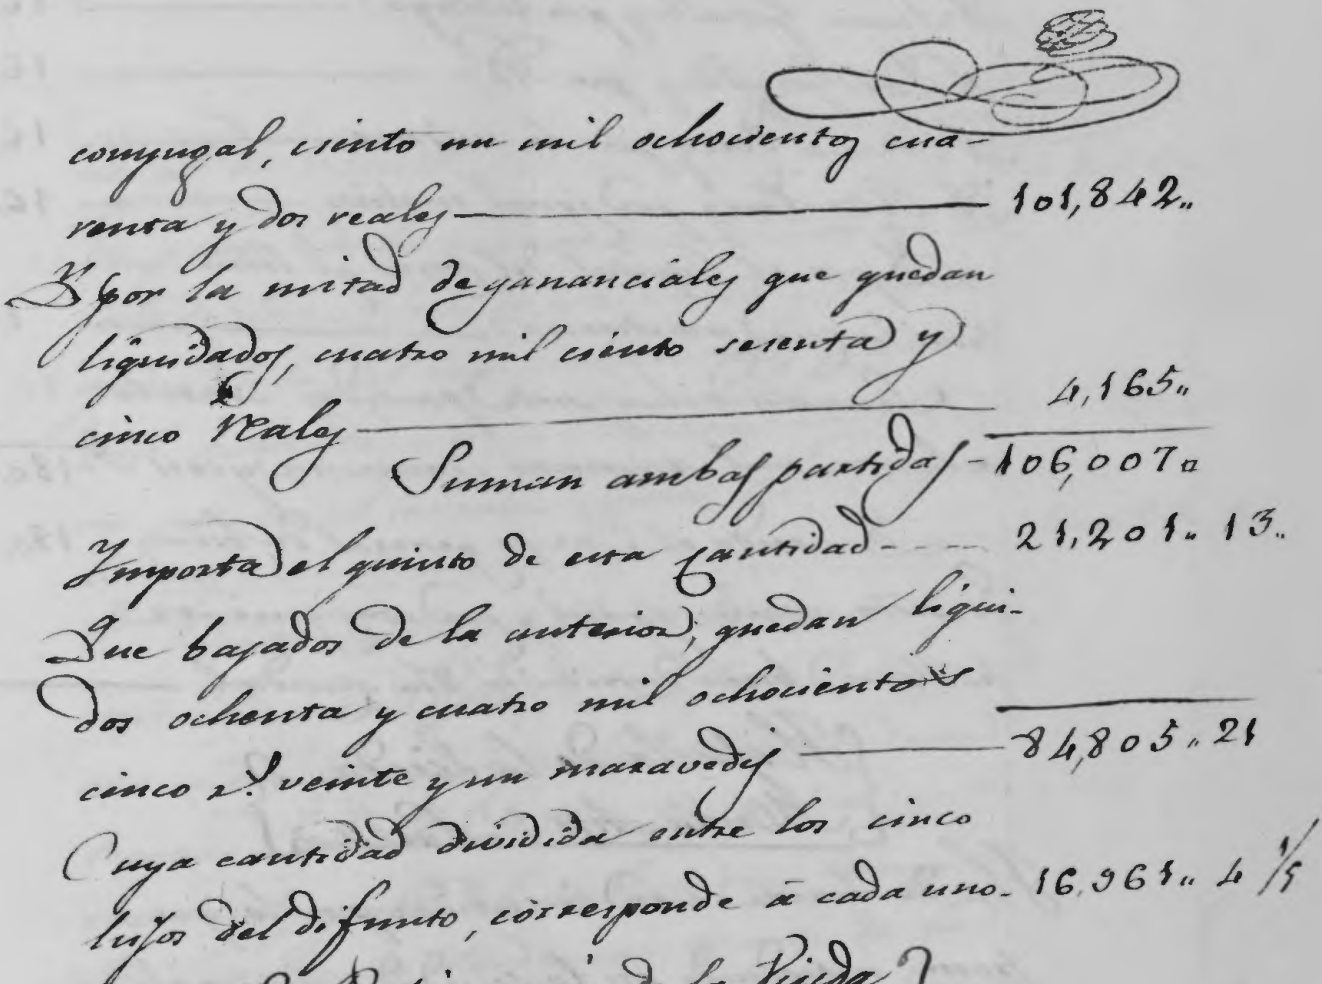 conyugal, ciento un mil ochocientos cua-
renta y dos reales — 101,842..
Y por la mitad de gananciales que quedan
liquidados, cuatro mil ciento sesenta y
cinco reales — 4,165..
Suman ambas partidas - 106,007..
Importa el quinto de esta cantidad - - - - 21,201.. 13..
Que bajados de la anterior, quedan liqui-
dos ochenta y cuatro mil ochocientos
cinco rs. veinte y un maravedis — 84,805.. 21
Cuya cantidad dividida entre los cinco
hijos del difunto, corresponde á cada uno - 16.961.. 4 1/5
de la Viuda